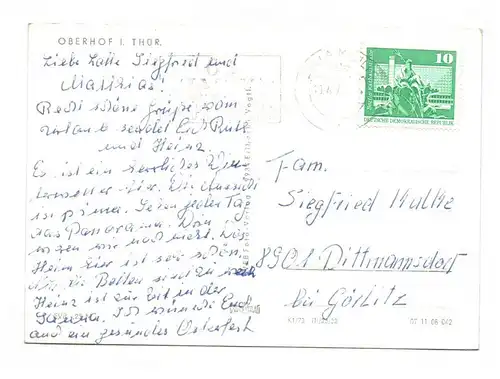 OBERHOF I. THÜR.
Liebe Lotte Siegfried und
Matthias!
Recht schöne Grüße vom
Urlaub sendet Euch Ruth
und Heinz
Es ist ein herrliches Win
terwetter hier. Die Aussicht
ist prima. Sehen jeden Tag
das Panorama. Ski
wir noch nicht. Das
Heim hier ist sehr schön,
die Betten sind
Heinz ist zur Zeit in der
Sauna. Ich wünsche Euch
auch ein gesundes Osterfest
10
DEUTSCHE DEMOKRATISCHE REPUBLIK
Fam.
Siegfried
8901 Dittmannsdorf
bei Görlitz
07 11 06 042